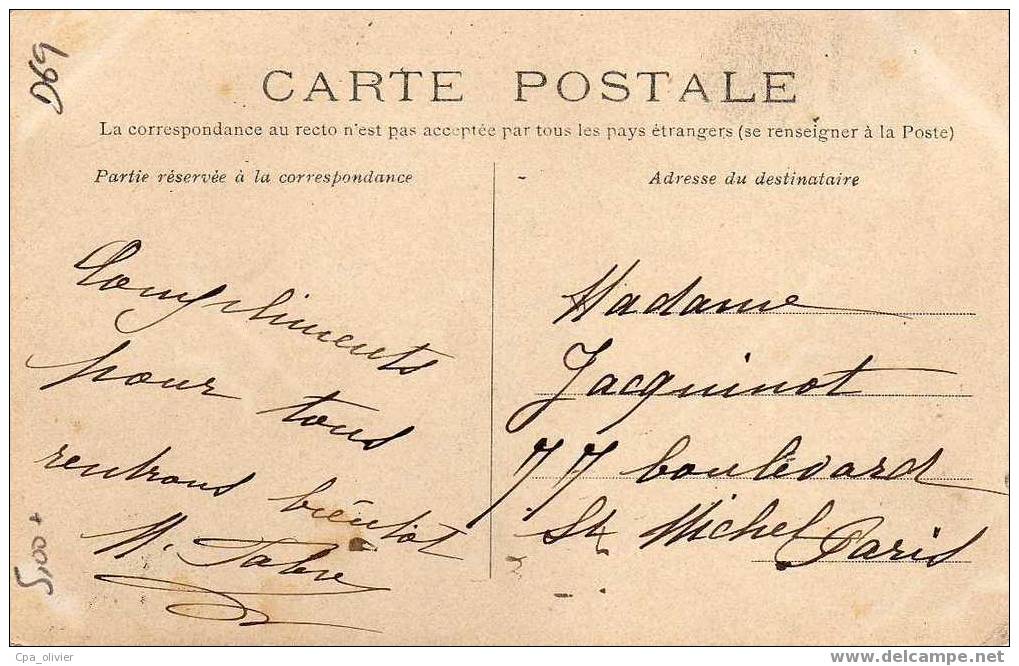 D69
CARTE POSTALE
La correspondance au recto n'est pas acceptée par tous les pays étrangers (se renseigner à la Poste)
Partie réservée à la correspondance
Compliments
pour tous
rentrons bientot
5,00+
Adresse du destinataire
Madame
Jacquinot
77 boulevard
St Michel Paris
Cpa_olivier
www.delcampe.net